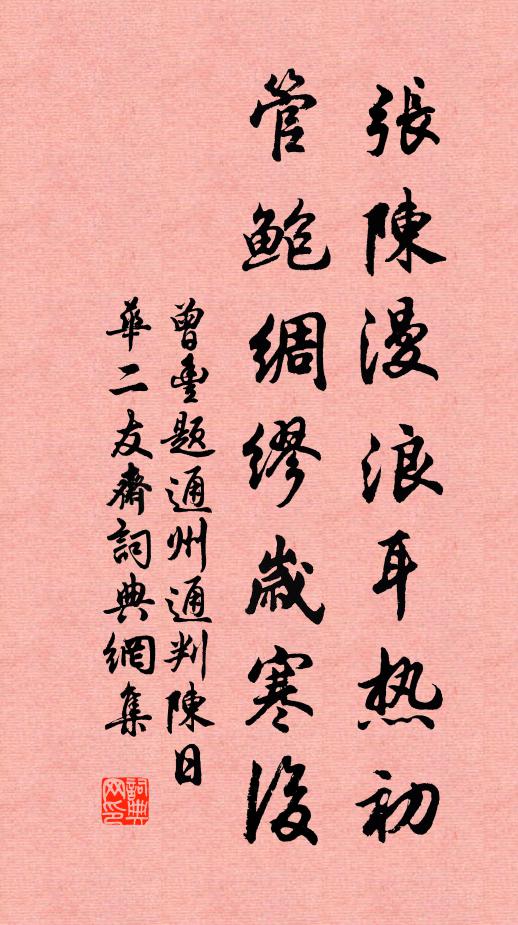 張陳漫浪耳热初
管鲍綢缪歲寒後
曾豊題通州通判陳日
華二友齋詞典網集
詞典网印